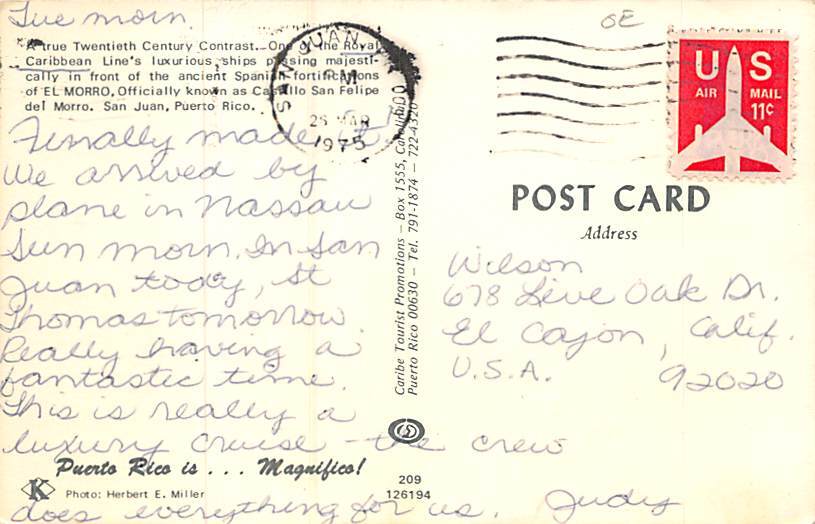 Tue morn
A true Twentieth Century Contrast. One of the Royal
Caribbean Line's luxurious ships passing majesti-
cally in front of the ancient Spanish fortifications
of EL MORRO, Officially known as Castillo San Felipe
del Morro. San Juan, Puerto Rico.
Finally made it!
We arrived by
plane in Nassau
Sun morn. In San
Juan today, St
Thomas tomorrow.
Really having a
fantastic time.
This is really a
luxury cruise - the crew
does everything for us. Judy
Puerto Rico is . . . Magnifico!
K
Photo: Herbert E. Miller
209
126194
Caribe Tourist Promotions – Box 1555, Carolina
Puerto Rico 00630 – Tel. 791-1874 – 722-4320
SAN JUAN
PM
25 MAR
1975
OE
US
AIR MAIL
11¢
POST CARD
Address
Wilson
678 Live Oak Dr.
El Cajon, Calif.
U.S.A. 92020